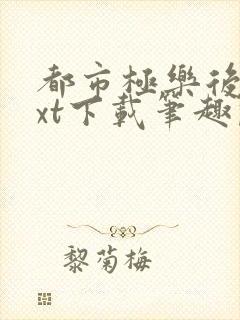 都市極樂後
xt下載筆趣
黎菊梅